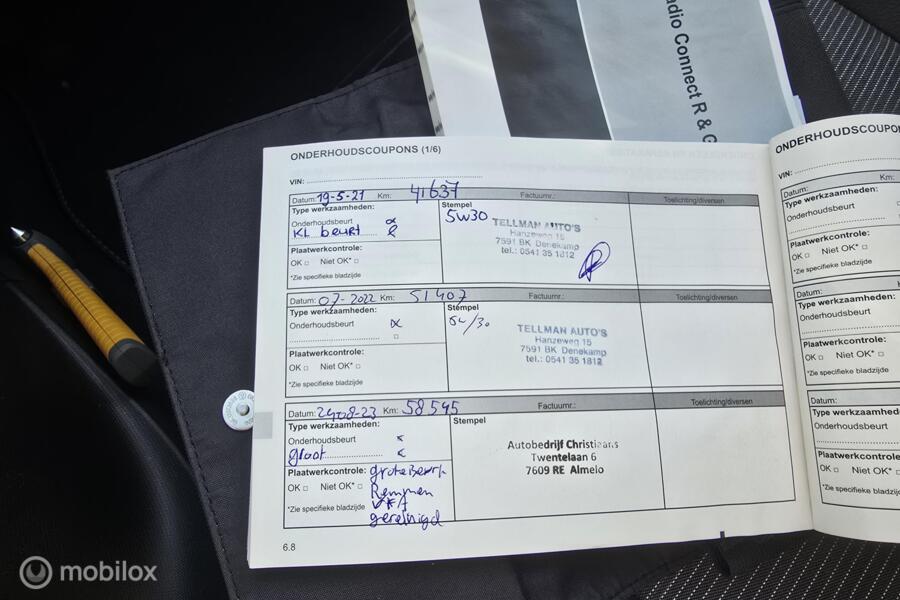 adio Connect R & G
ONDERHOUDSCOUPONS (1/6)
VIN:
Datum: 19-5-21 Km: 41637 Factuurnr.: Toelichting/diversen
Type werkzaamheden:
Onderhoudsbeurt
Kl beurt
Stempel
5W30
TELLMAN AUTO'S
Hanzeweg 15
7591 BK Denekamp
tel.: 0541 35 1812
Plaatwerkcontrole:
OK □ Niet OK* □
*Zie specifieke bladzijde
Datum: 07-2022 Km: 51407 Factuurnr.: Toelichting/diversen
Type werkzaamheden:
Onderhoudsbeurt
Stempel
TELLMAN AUTO'S
Hanzeweg 15
7591 BK Denekamp
tel.: 0541 35 1812
Plaatwerkcontrole:
OK □ Niet OK* □
*Zie specifieke bladzijde
Datum: 24-08-23 Km: 58545 Factuurnr.: Toelichting/diversen
Type werkzaamheden:
Onderhoudsbeurt
groot
Stempel
Autobedrijf Christiaans
Twentelaan 6
7609 RE Almelo
Plaatwerkcontrole: grote Beurt
OK □ Niet OK* □ Remmen
*Zie specifieke bladzijde
gereinigd
6.8
ONDERHOUDSCOUPON
VIN:
Datum: Km:
Type werkzaamheden:
Onderhoudsbeurt
Plaatwerkcontrole:
OK □ Niet OK* □
*Zie specifieke bladzijde
Datum:
Type werkzaamheden:
Onderhoudsbeurt
Plaatwerkcontrole:
OK □ Niet OK* □
*Zie specifieke bladzijde
Datum:
Type werkzaamheden:
Onderhoudsbeurt
Plaatwerkcontrole:
OK □ Niet OK* □
*Zie specifieke bladzijde
mobilox